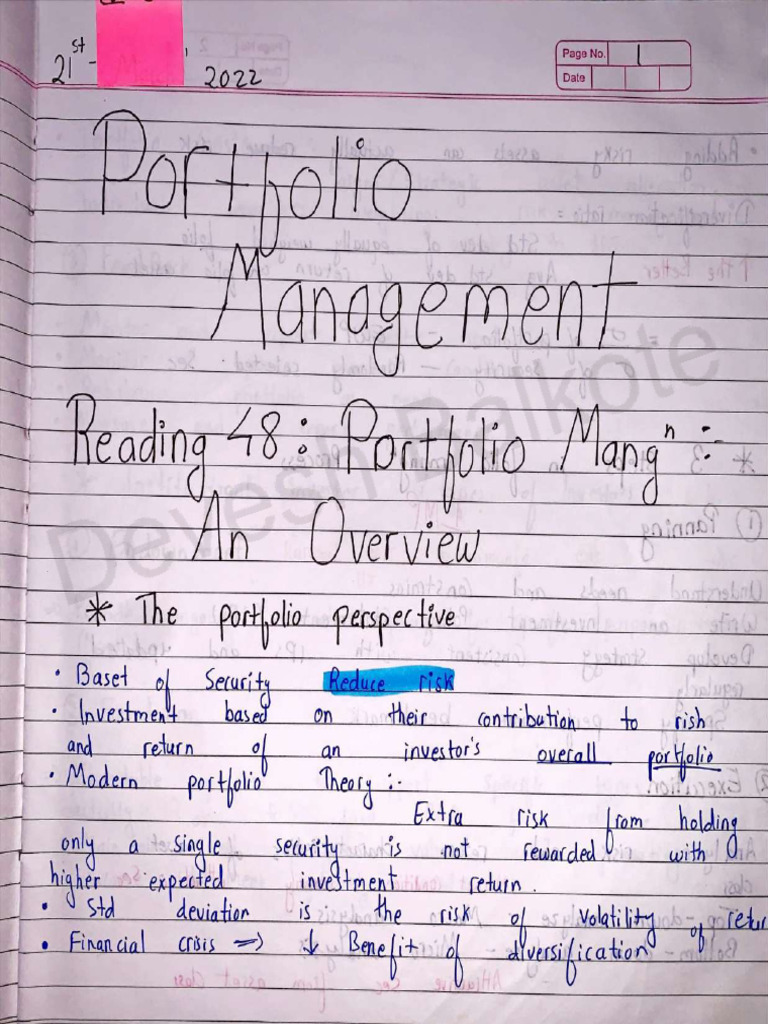 21st - 2022
Page No. 1
Date
Portfolio
Management
Reading 48 : Portfolio Mangn :-
An Overview
* The portfolio perspective
• Baset of Security Reduce risk
• Investment based on their contribution to rish
and return of an investor's overall portfolio
• Modern portfolio Theory :-
Extra risk from holding
only a single security is not rewarded with
higher expected investment return.
• Std deviation is the risk of volatility of retur
• Financial crisis => ↓ Benefit of diversification
Devesh Balkote